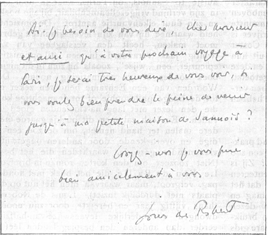 Ai-je besoin de vous dire, cher Monsieur
et ami qu'à votre prochain voyage à
Paris, je serai très heureux de vous voir, si
vous voulez bien prendre la peine de venir
jusqu'à ma petite maison de Sannois ?
Croyez-moi je vous prie
bien amicalement à vous.
Louis de Robert